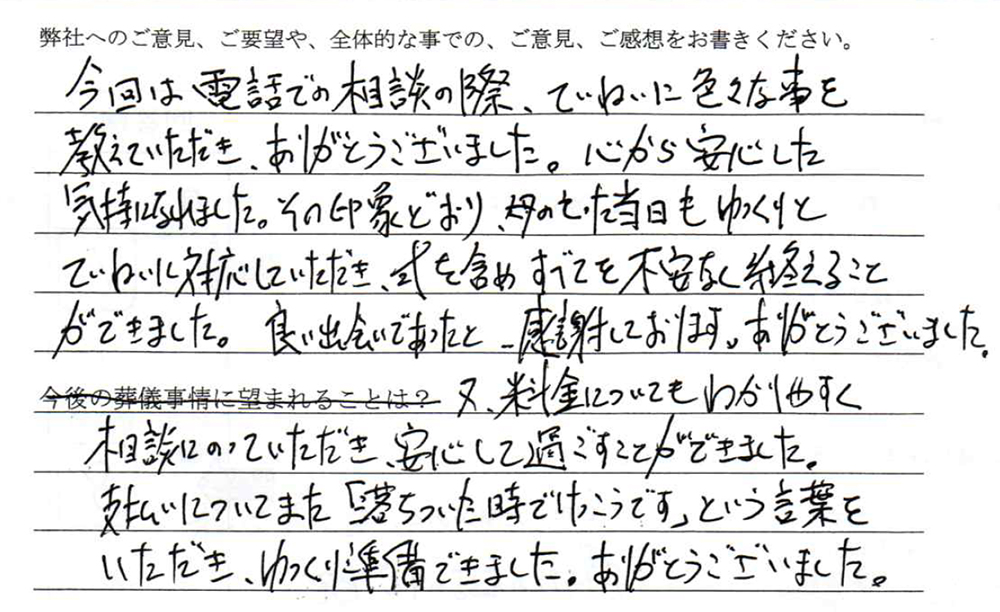 弊社へのご意見、ご要望や、全体的な事での、ご意見、ご感想をお書きください。
今回は電話での相談の際、ていねいに色々な事を
教えていただき、ありがとうございました。心から安心した
気持になれました。その印象どおり、母のた当日もゆっくりと
ていねいに対応していただき、式を含めすべてを不安なく終えること
ができました。良い出会いであったと感謝しております。ありがとうございました。
今後の葬儀事情に望まれることは？ 又、料金についてもわかりやすく
相談にのっていただき、安心して過ごすことができました。
支払いについてまた「落ちついた時でけっこうです」という言葉を
いただき、ゆっくり準備できました。ありがとうございました。